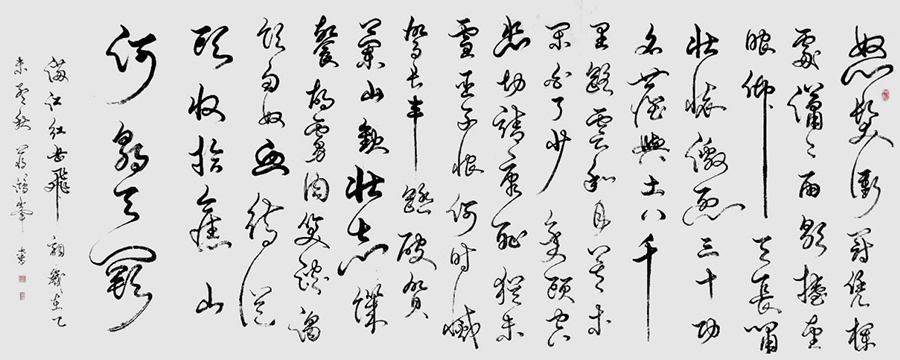 怒髮衝冠憑欄
處瀟瀟雨歇擡望
眼仰天長嘯
壯懷激烈三十功
名塵與土八千
里路雲和月莫等
閑白了少年頭空
悲切靖康恥猶未
雪臣子恨何時滅
駕長車踏破賀
蘭山缺壯志饑
餐胡虜肉笑談渴
飲匈奴血待從
頭收拾舊山
河朝天闕
滿江紅岳飛詞歲在乙
未孟秋書